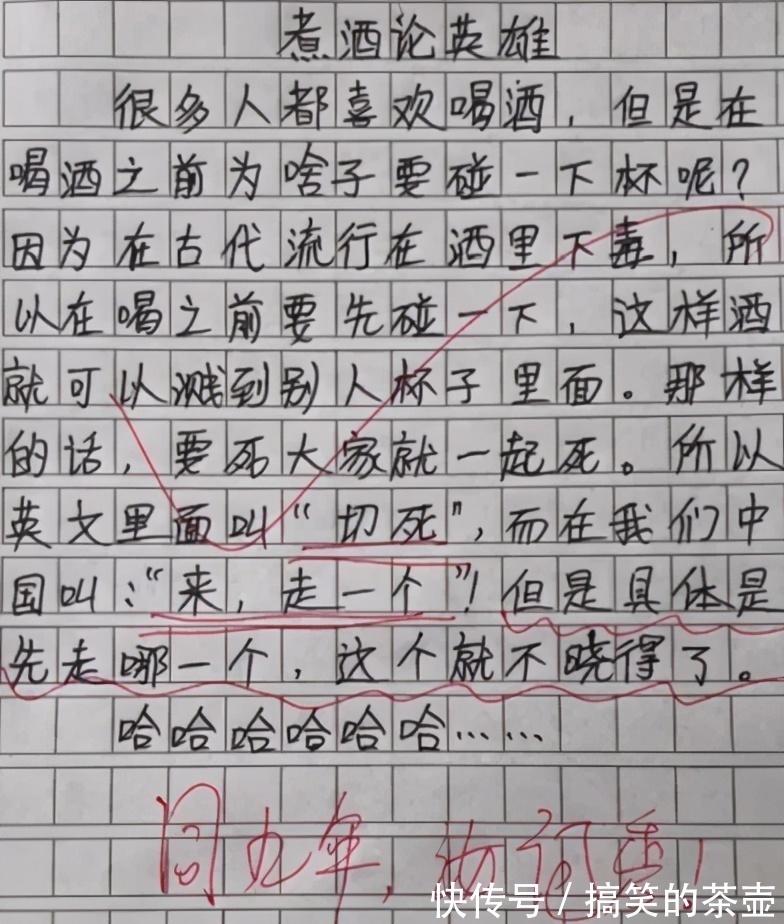 煮酒论英雄
很多人都喜欢喝酒，但是在
喝酒之前为啥子要碰一下杯呢？
因为在古代流行在酒里下毒，所
以在喝之前要先碰一下，这样酒
就可以溅到别人杯子里面。那样
的话，要死大家就一起死。所以
英文里面叫“切死”，而在我们中
国叫：“来，走一个”！但是具体是
先走哪一个，这个就不晓得了。
哈哈哈哈哈哈……
同九年，汝何秀！
快传号／搞笑的茶壶